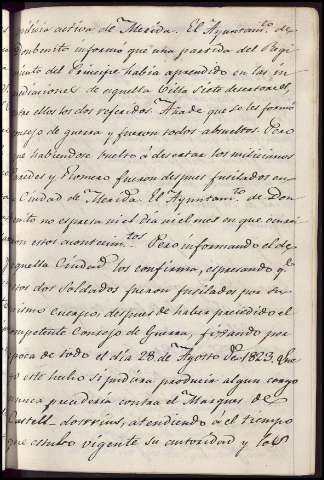 milicia activa de Merida. El Ayuntam.to de
Donbenito informo que una partida del Regi
miento del Principe habia aprendido en las in
mediaciones de aquella Villa siete desertores,
entre ellos los dos referidos. Añade que se les formó
consejo de guerra y fueron todos absueltos. Pero
que habiendose buelto á desertar los milicianos
y Romero fueron despues fusilados en
la Ciudad de Merida. El Ayuntam.to de Don
benito no espresa ni el dia ni el mes en que ocurri
eron estos acontecim.tos Pero informando el de
aquella Ciudad los confirma, espresando q.e
estos dos Soldados fueron fusilados por su
mismo cuerpo, despues de haber precedido el
competente Consejo de Guerra, fixando por
epoca de todo el dia 28 de Agosto de 1823. Que
si este hecho si pudiera producir algun cargo
nunca procederia contra el Marques de
Castell-dosrrius, atendiendo á el tiempo
que estubo vigente su autoridad y los